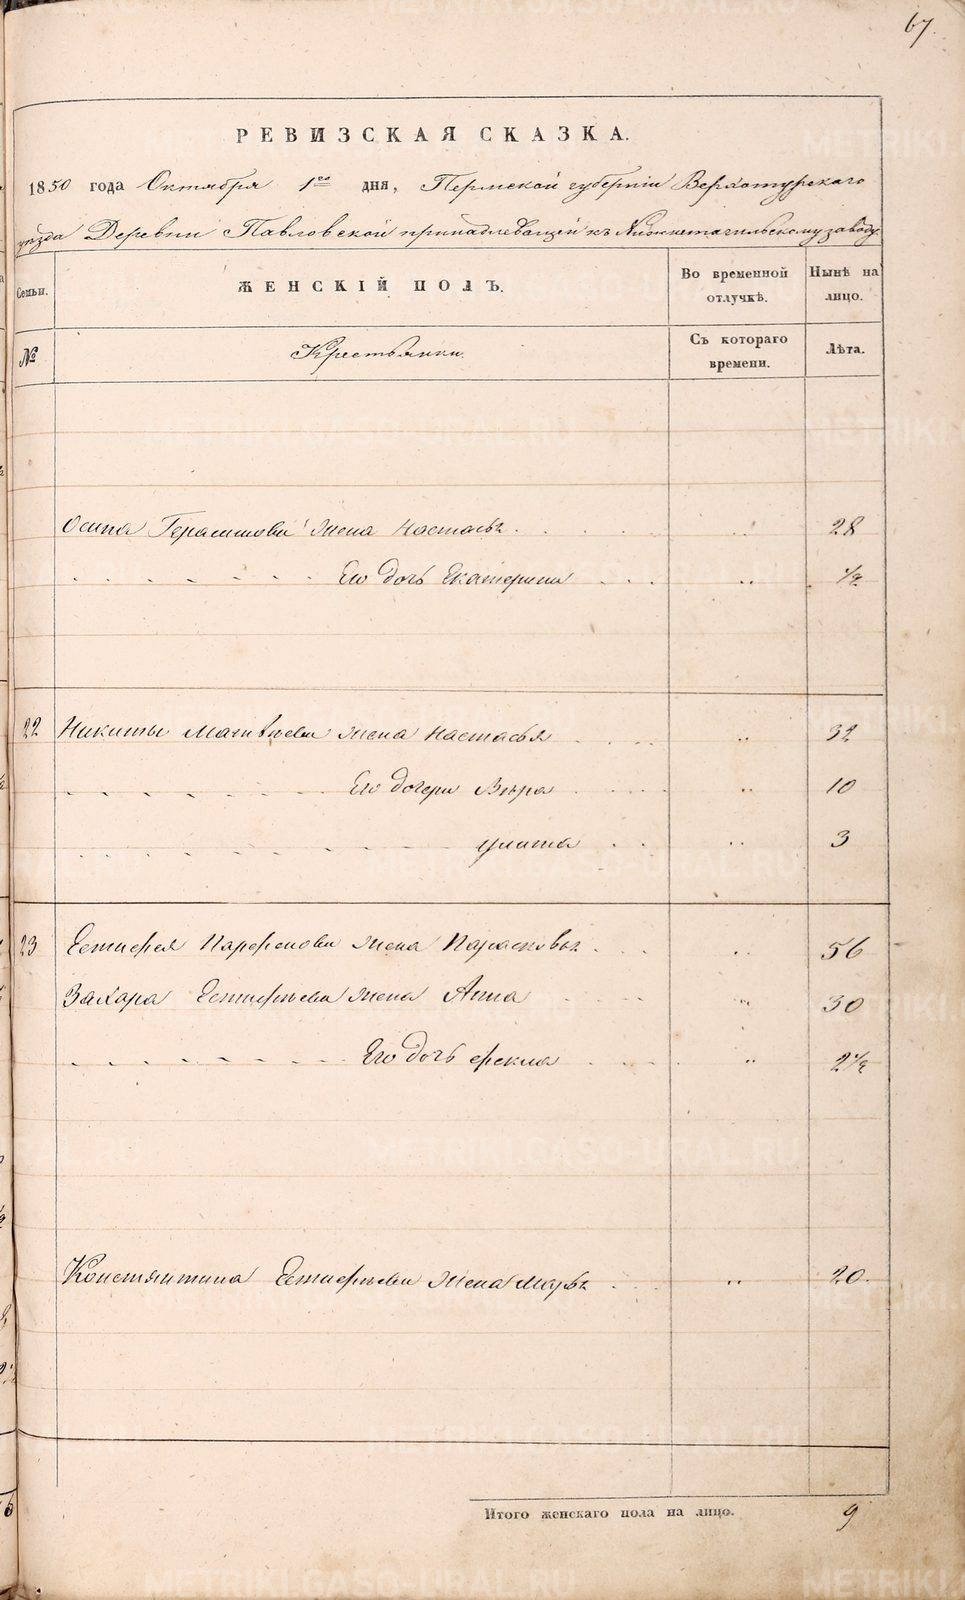 67.
РЕВИЗСКАЯ СКАЗКА.
1850 года Октября 1го дня, Пермской губернiи Верхотурского
уѣзда Деревни Павловской принадлежащей къ Нижнетагильскому заводу
Семьи. ЖЕНСКIЙ ПОЛЪ. Во временной отлучкѣ. Нынѣ на лицо.
№ Крестьянки. Съ котораго времени. Лѣта.
Осипа Герасимова жена Настасья 28
Его дочь Екатерина 1/2
22 Никиты Матвѣева жена Настасья 32
Его дочери Вѣра 10
Улита 3
23 Естифея Парфенова жена Парасковья 56
Захара Естифѣева жена Анна 30
Его дочь Фекла 2 1/2
Константина Естифѣева жена Марья 20.
Итого женскаго пола на лицо. 9
METRIKI.GASO-URAL.RU